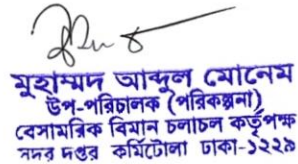 মুহাম্মদ আব্দুল মোনেম
উপ-পরিচালক (পরিকল্পনা)
বেসামরিক বিমান চলাচল কর্তৃপক্ষ
সদর দপ্তর কুর্মিটোলা ঢাকা-১২২৯